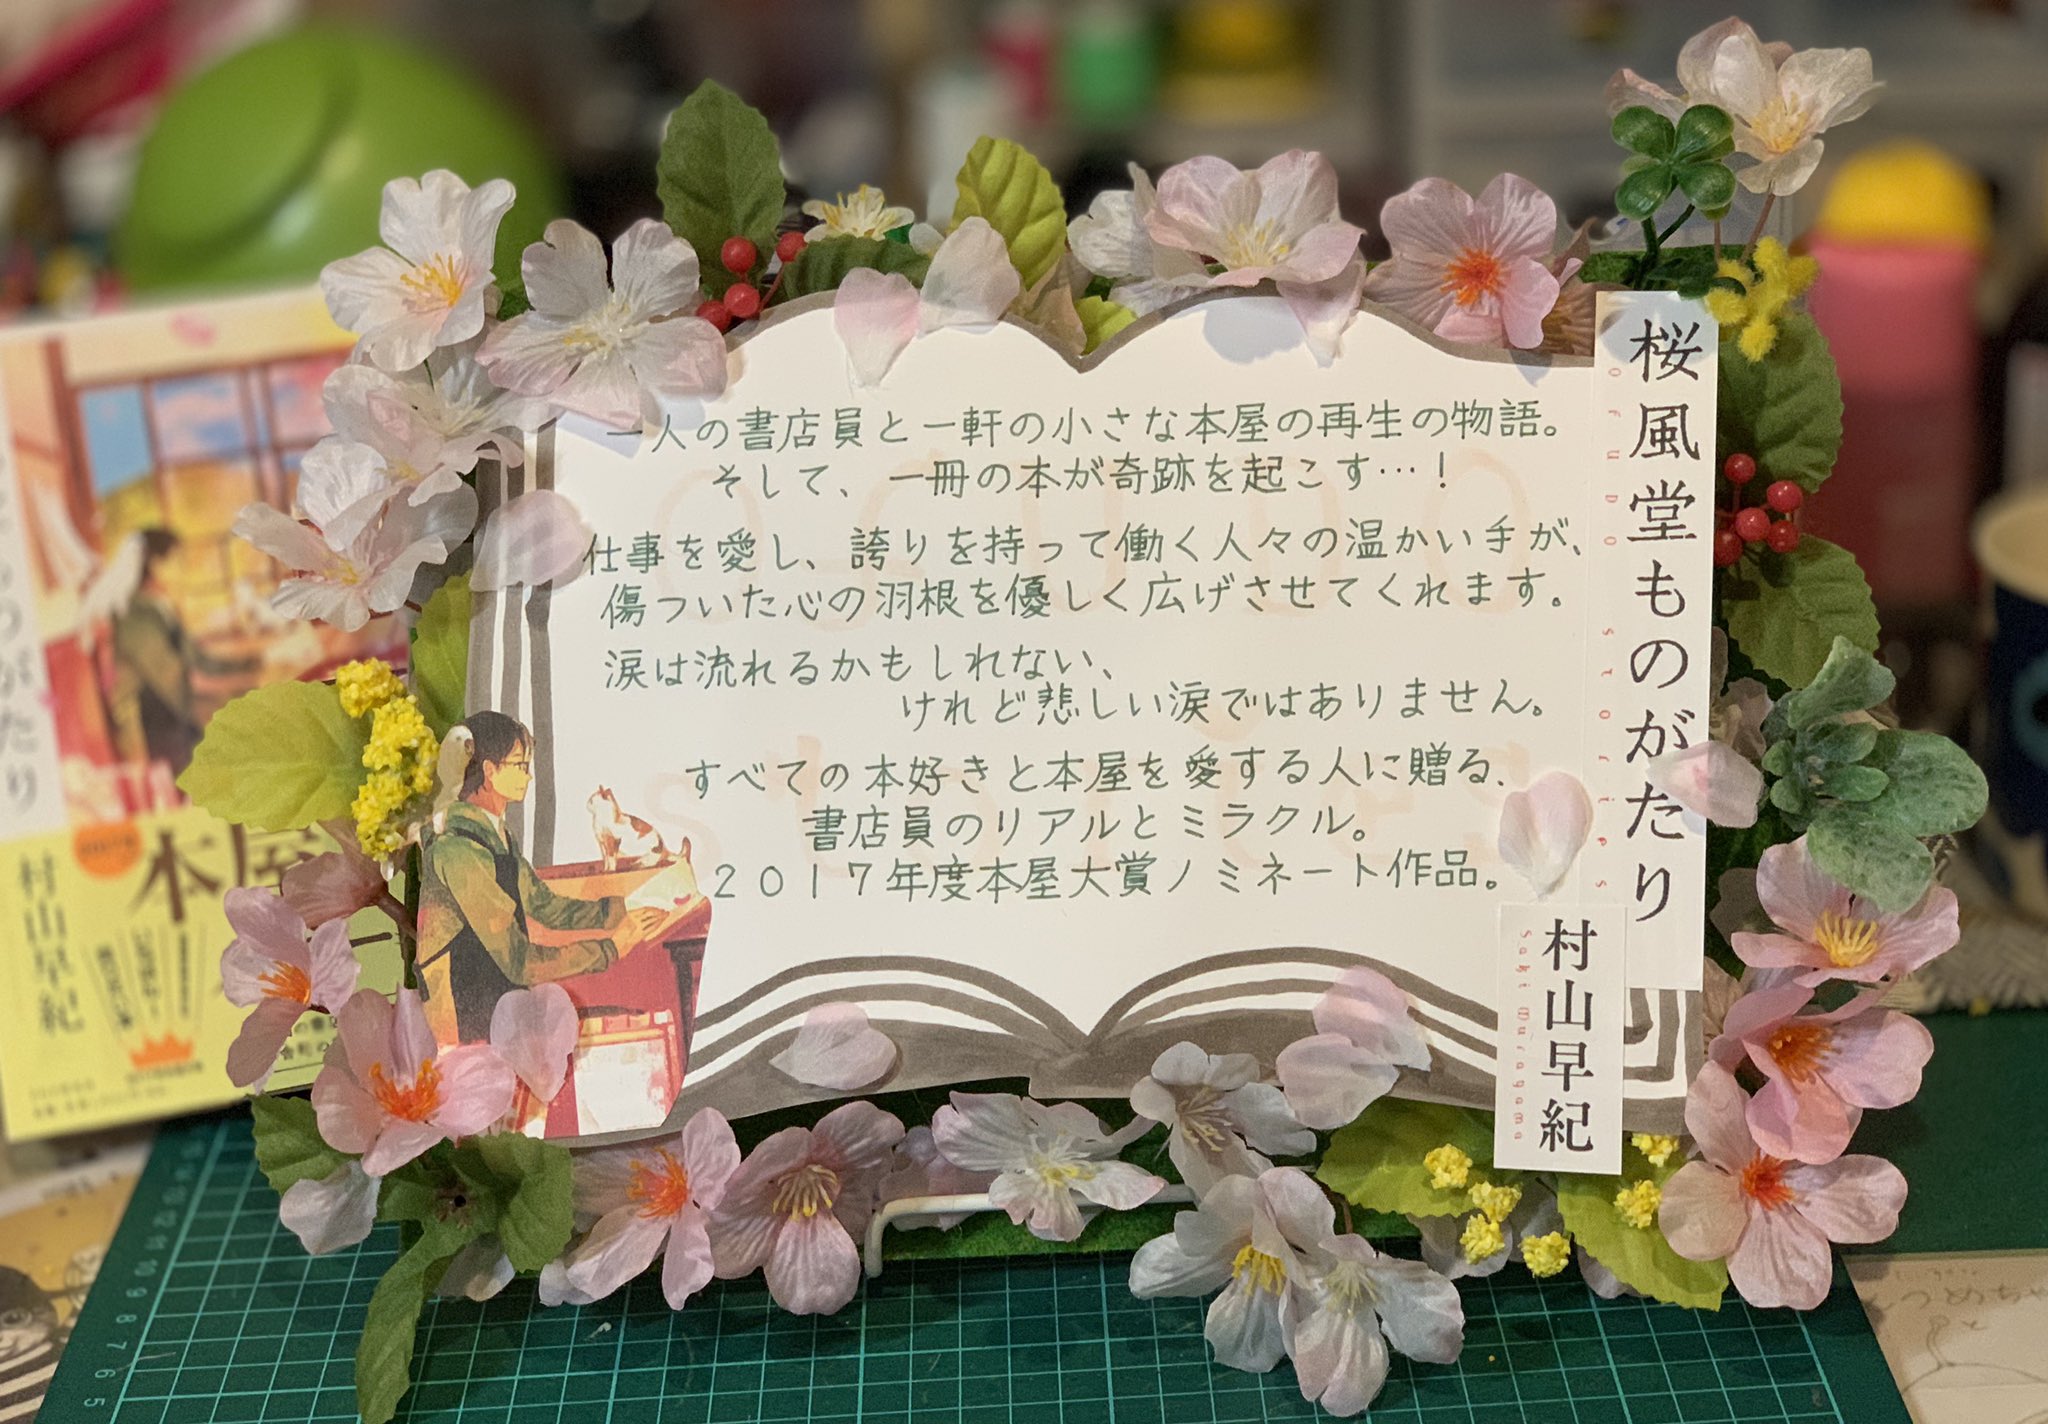 一人の書店員と一軒の小さな本屋の再生の物語。
そして、一冊の本が奇跡を起こす…！
仕事を愛し、誇りを持って働く人々の温かい手が、
傷ついた心の羽根を優しく広げさせてくれます。
涙は流れるかもしれない、
けれど悲しい涙ではありません。
すべての本好きと本屋を愛する人に贈る、
書店員のリアルとミラクル。
2017年度本屋大賞ノミネート作品。
桜風堂ものがたり
ofudo stories
村山早紀
Saki Murayama
ofudo
stories
ものがたり
本屋
村山早紀
13
12
11
10
9
8
7
6
5